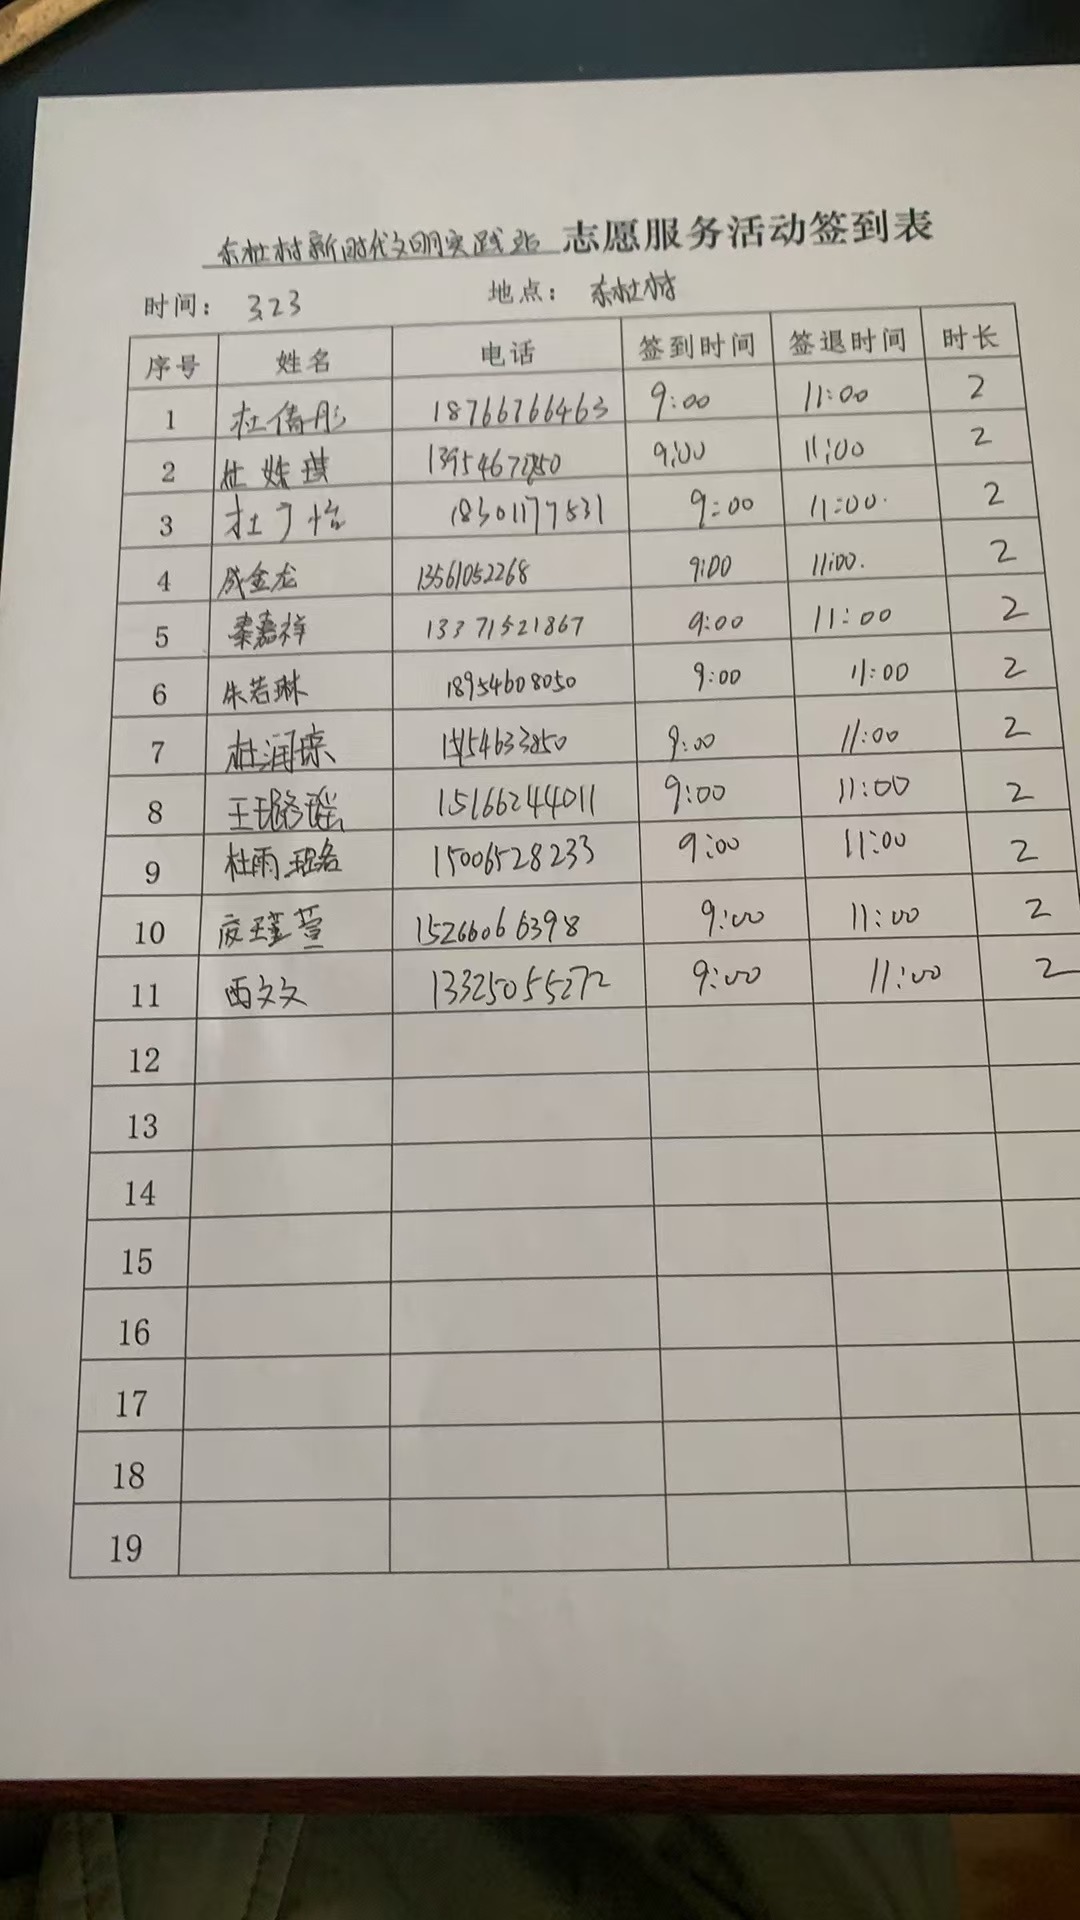 东杜村新时代文明实践站 志愿服务活动签到表
时间: 3.23 地点: 东杜村
序号 姓名 电话 签到时间 签退时间 时长
1 杜倩彤 18766766463 9:00 11:00 2
2 杜姝琪 9:00 11:00 2
3 杜予怡 18301177531 9:00 11:00. 2
4 成金龙 13561052268 9:00 11:00. 2
5 秦嘉祥 13371521867 9:00 11:00 2
6 朱若琳 18954608050 9:00 11:00 2
7 杜润琛 9:00 11:00 2
8 王璐瑶 15166244011 9:00 11:00 2
9 杜雨珺 15006528233 9:00 11:00 2
10 15266066398 9:00 11:00 2
11 西文文 13325055272 9:00 11:00 2
12
13
14
15
16
17
18
19